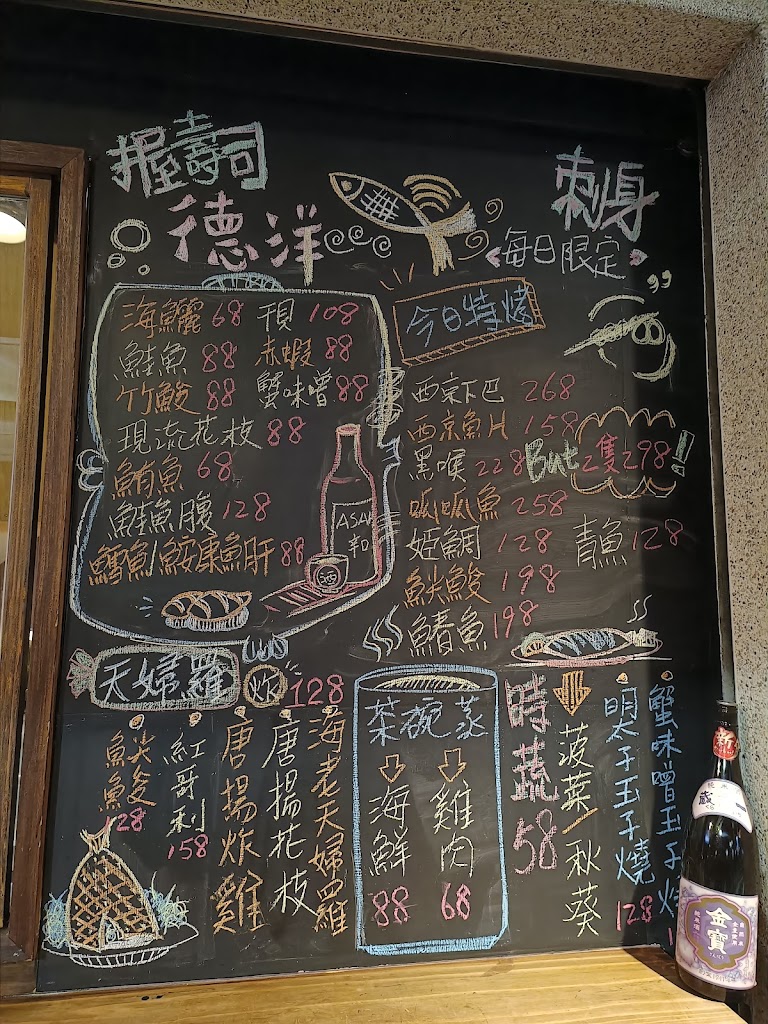 握壽司
德洋
刺身
每日限定
海鱺 68
鮭魚 88
竹鮻 88
現流花枝 88
鮪魚 68
鮭魚腹 128
鱈魚/鮟康魚肝 88
108
赤蝦 88
蟹味噌 88
今日特烤
西京下巴 268
西京魚片 158
黑喉 228 But 2隻298!
呱呱魚 258
婭鯛 128
青魚 128
魰鮻 198
鯖魚 198
天婦羅
炸 128
魰鮻 128
紅哥利 158
唐揚炸雞
唐揚花枝
海老天婦羅
茶碗蒸
海鮮 88
雞肉 68
時蔬 58
菠菜/秋葵
明太子玉子燒 128
蟹味噌玉子燒
ASAHI
新
藏
金寶